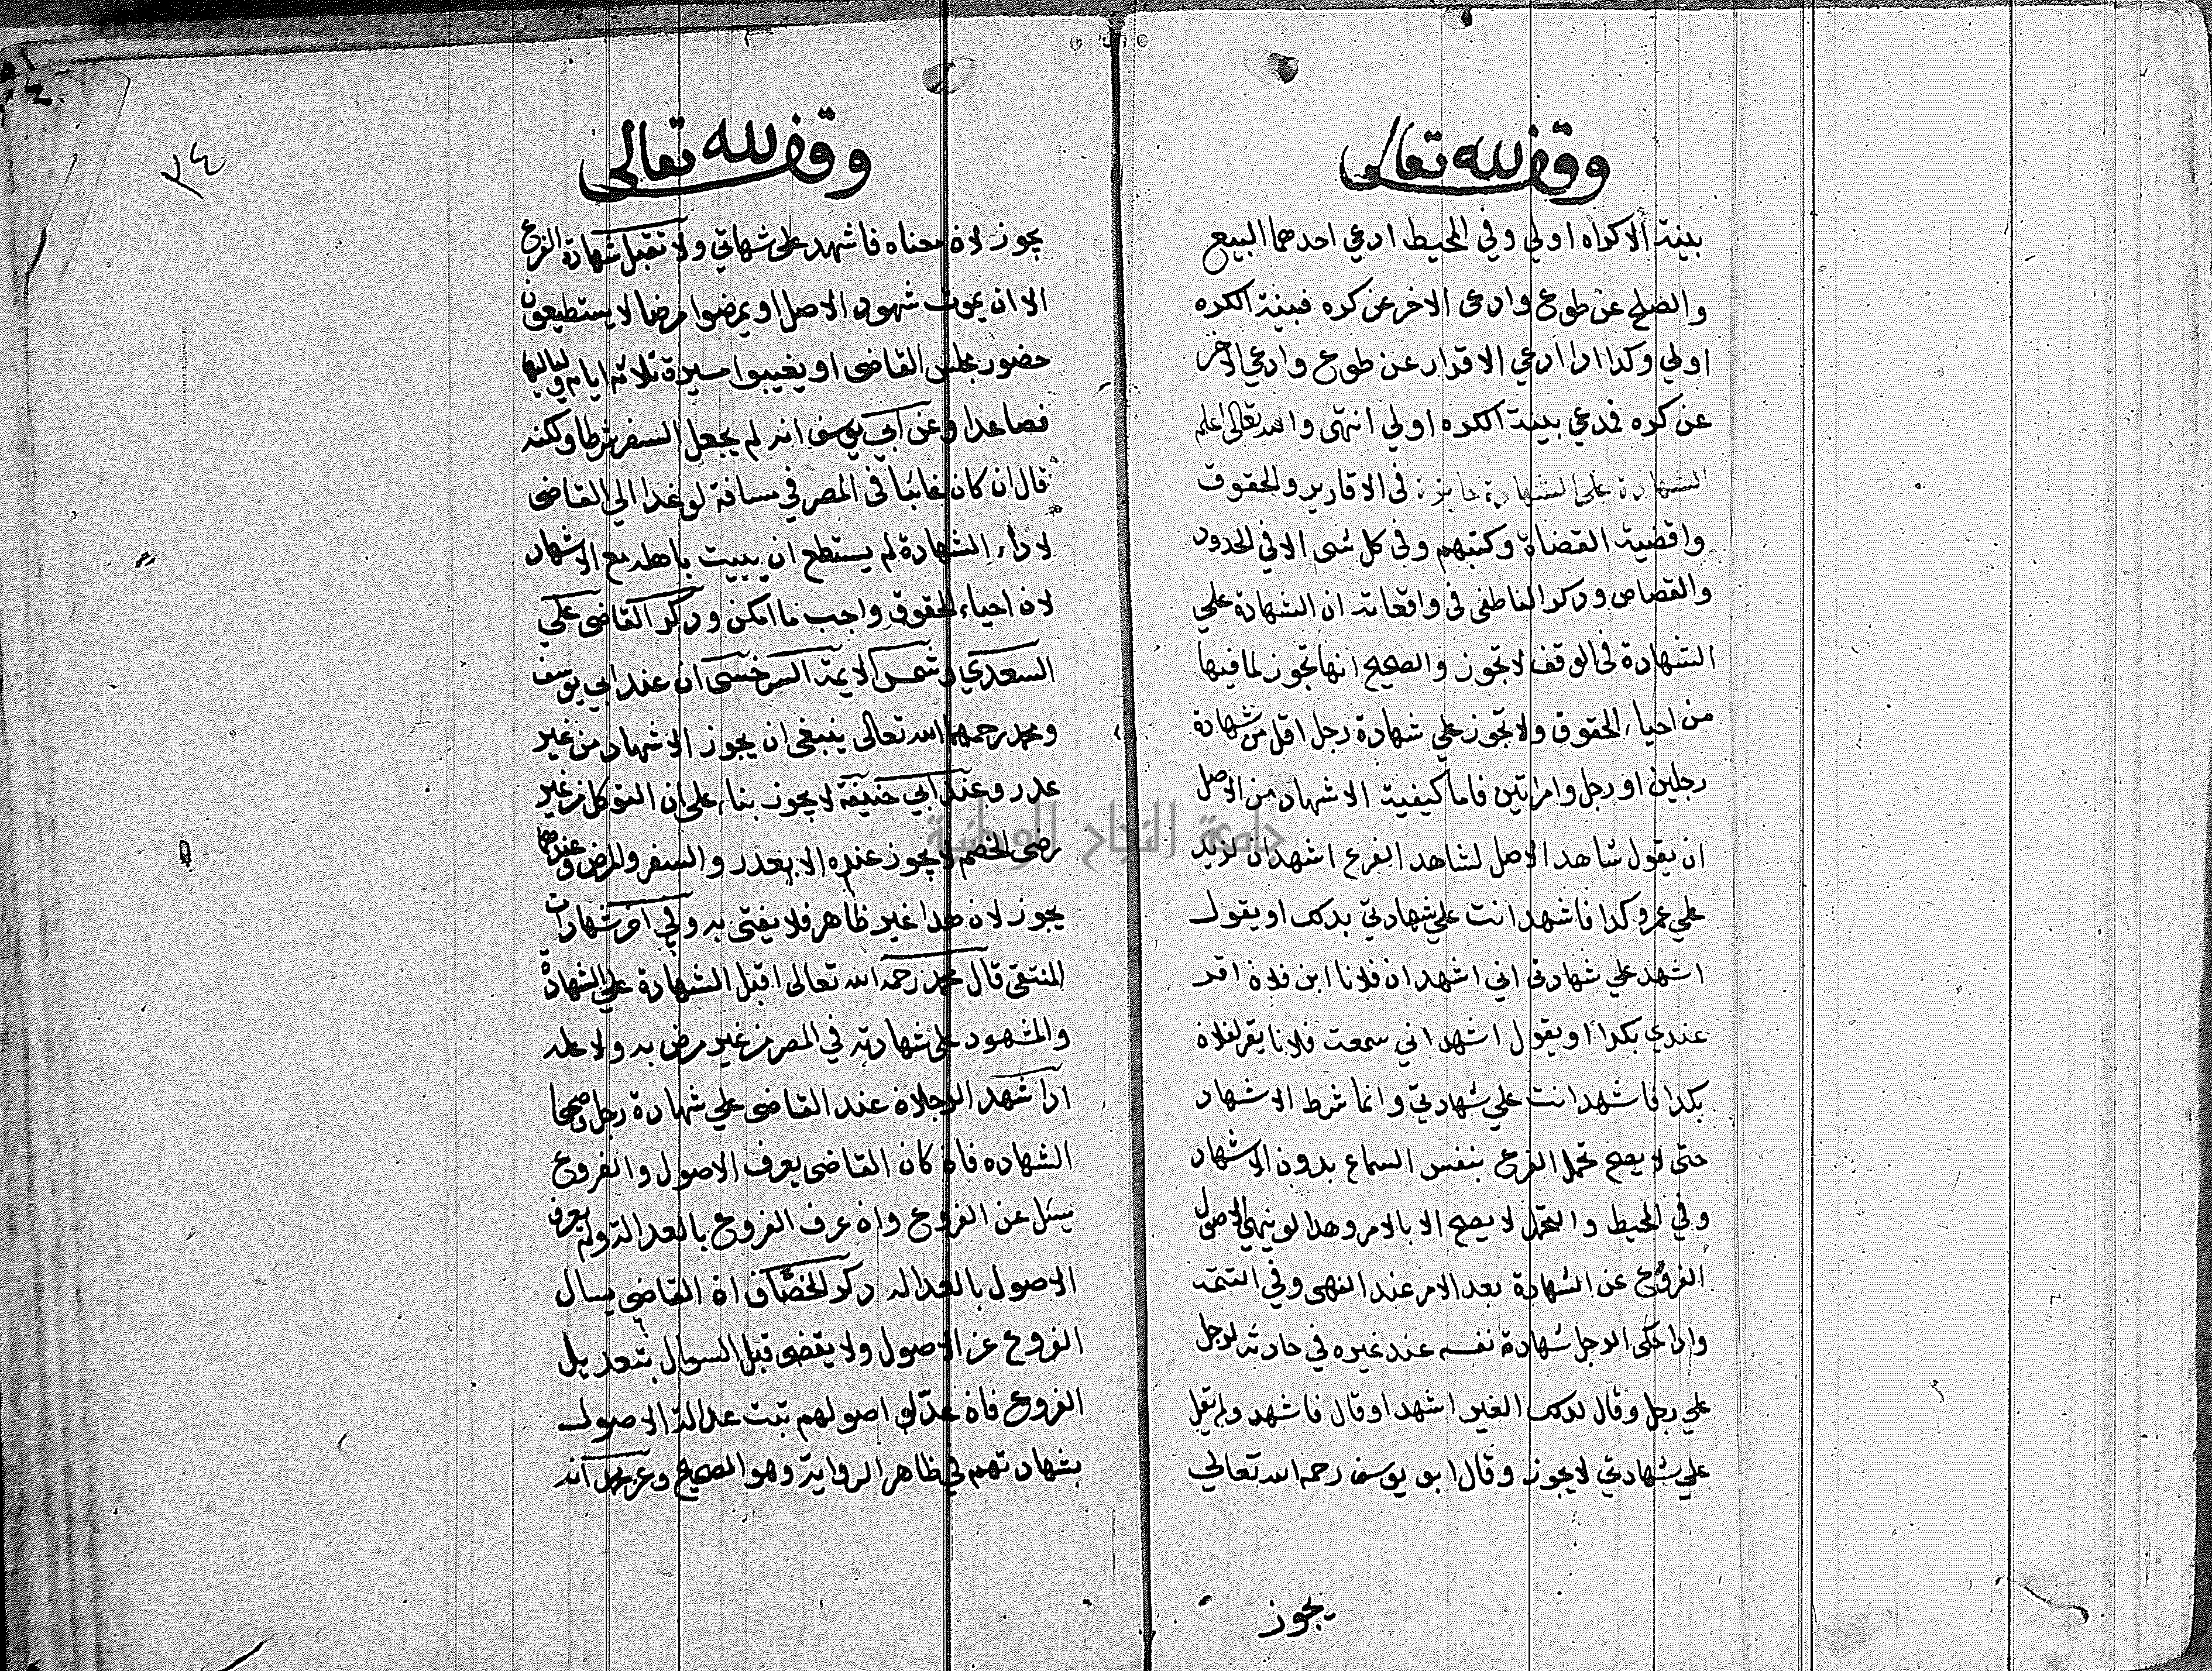 وقف لله تعالى
بينة الاكراه اولي وفي المحيط ادعي احدهما البيع
والصلح عن طوع وادعى الاخر عن كره فبينة الكره
اولي وكدا ادا ادعي الاقرار عن طوع وادعي الاخر
عن كره فمدعي بينة الكره اولي انتهى والله تعالى اعلم
الشهادة على الشهادة جايزة في الاقارير والحقوق
واقضية القضاة وكتبهم وفي كل شى الا في الحدود
والقصاص ودكر الناطفى فى واقعاته ان الشهادة علي
الشهادة فى الوقف لا تجوز والصحيح انها تجوز لما فيها
من احياء الحقوق ولا تجوز علي شهادة رجل اقل من شهادة
رجلين او رجل وامراتين فاما كيفية الاشهاد من الاصل
ان يقول شاهد الاصل لشاهد الفرع اشهد ان لزيد
علي عمرو كدا فاشهد انت علي شهادتي بدلك او يقول
اشهد علي شهادتى اني اشهد ان فلانا ابن فلان اقر
عندي بكدا او يقول اشهد اني سمعت فلانا يقر لفلان
بكدا فاشهد انت علي شهادتي وانما شرط الاشهاد
حتى لا يصح تحمل الفرع بنفس السماع بدون الاشهاد
وفي المحيط والتحمل لا يصح الا بالامر وهدا لو نهي الاصول
الفروع عن الشهادة بعد الامر عند النهى وفي التتمة
وادا حكى الرجل شهادة نفسه عند غيره في حادثه لرجل
علي رجل وقال لدلك الغير اشهد او قال فاشهد ولم يقل
علي شهادتي لا يجوز وقال ابو يوسف رحمه الله تعالي
يجوز
وقف لله تعالى
٣٤
يجوز لان معناه فاشهد على شهاتي ولا تقبل شهادة الفرع
الا ان يموت شهود الاصل او يمرضوا مرضا لا يستطيعون
حضور مجلس القاضى او يغيبوا مسيرة ثلاثه ايام ولياليها
فصاعدا وعن ابي يوسف انه لم يجعل السفر شرطا ولكنه
قال ان كان غائبا فى المصر في مسافة لو غدا الي القاضى
لاداء الشهادة لم يستطع ان يبيت باهله مع الاشهاد
لان احياء الحقوق واجب ما امكن ودكر القاضى علي
السعدي وشمس الايمة السرخسى ان عند ابي يوسف
ومحمد رحمهما الله تعالى ينبغى ان يجوز الاشهاد من غير
عدر وعند ابي حنيفة لا يجوز بناء على ان التوكل من غير
رضى الخصم لا يجوز عنده الا بعدر والسفر والمرض وعندهما
يجوز لان هدا غير ظاهر فلا يفتى به وفي اخر شهادات
المنتقى قال محمد رحمه الله تعالى اقبل الشهادة علي الشهادة
والمشهود على شهادته في المصر من غير مرض به ولا عله
ادا شهد الرجلان عند القاضى علي شهادة رجل وصححا
الشهاده فان كان القاضى يعرف الاصول والفروع
يسئل عن الفروع وان عرف الفروع بالعدالة ولم يعرف
الاصول بالعداله دكر الخصاف ان القاضي يسال
الفروع عن الاصول ولا يقضى قبل السوال بتعديل
الفروع فان عدلو اصولهم تبت عدالة الاصول
بشهادتهم في ظاهر الرواية وهو الصحيح وعن محمد انه